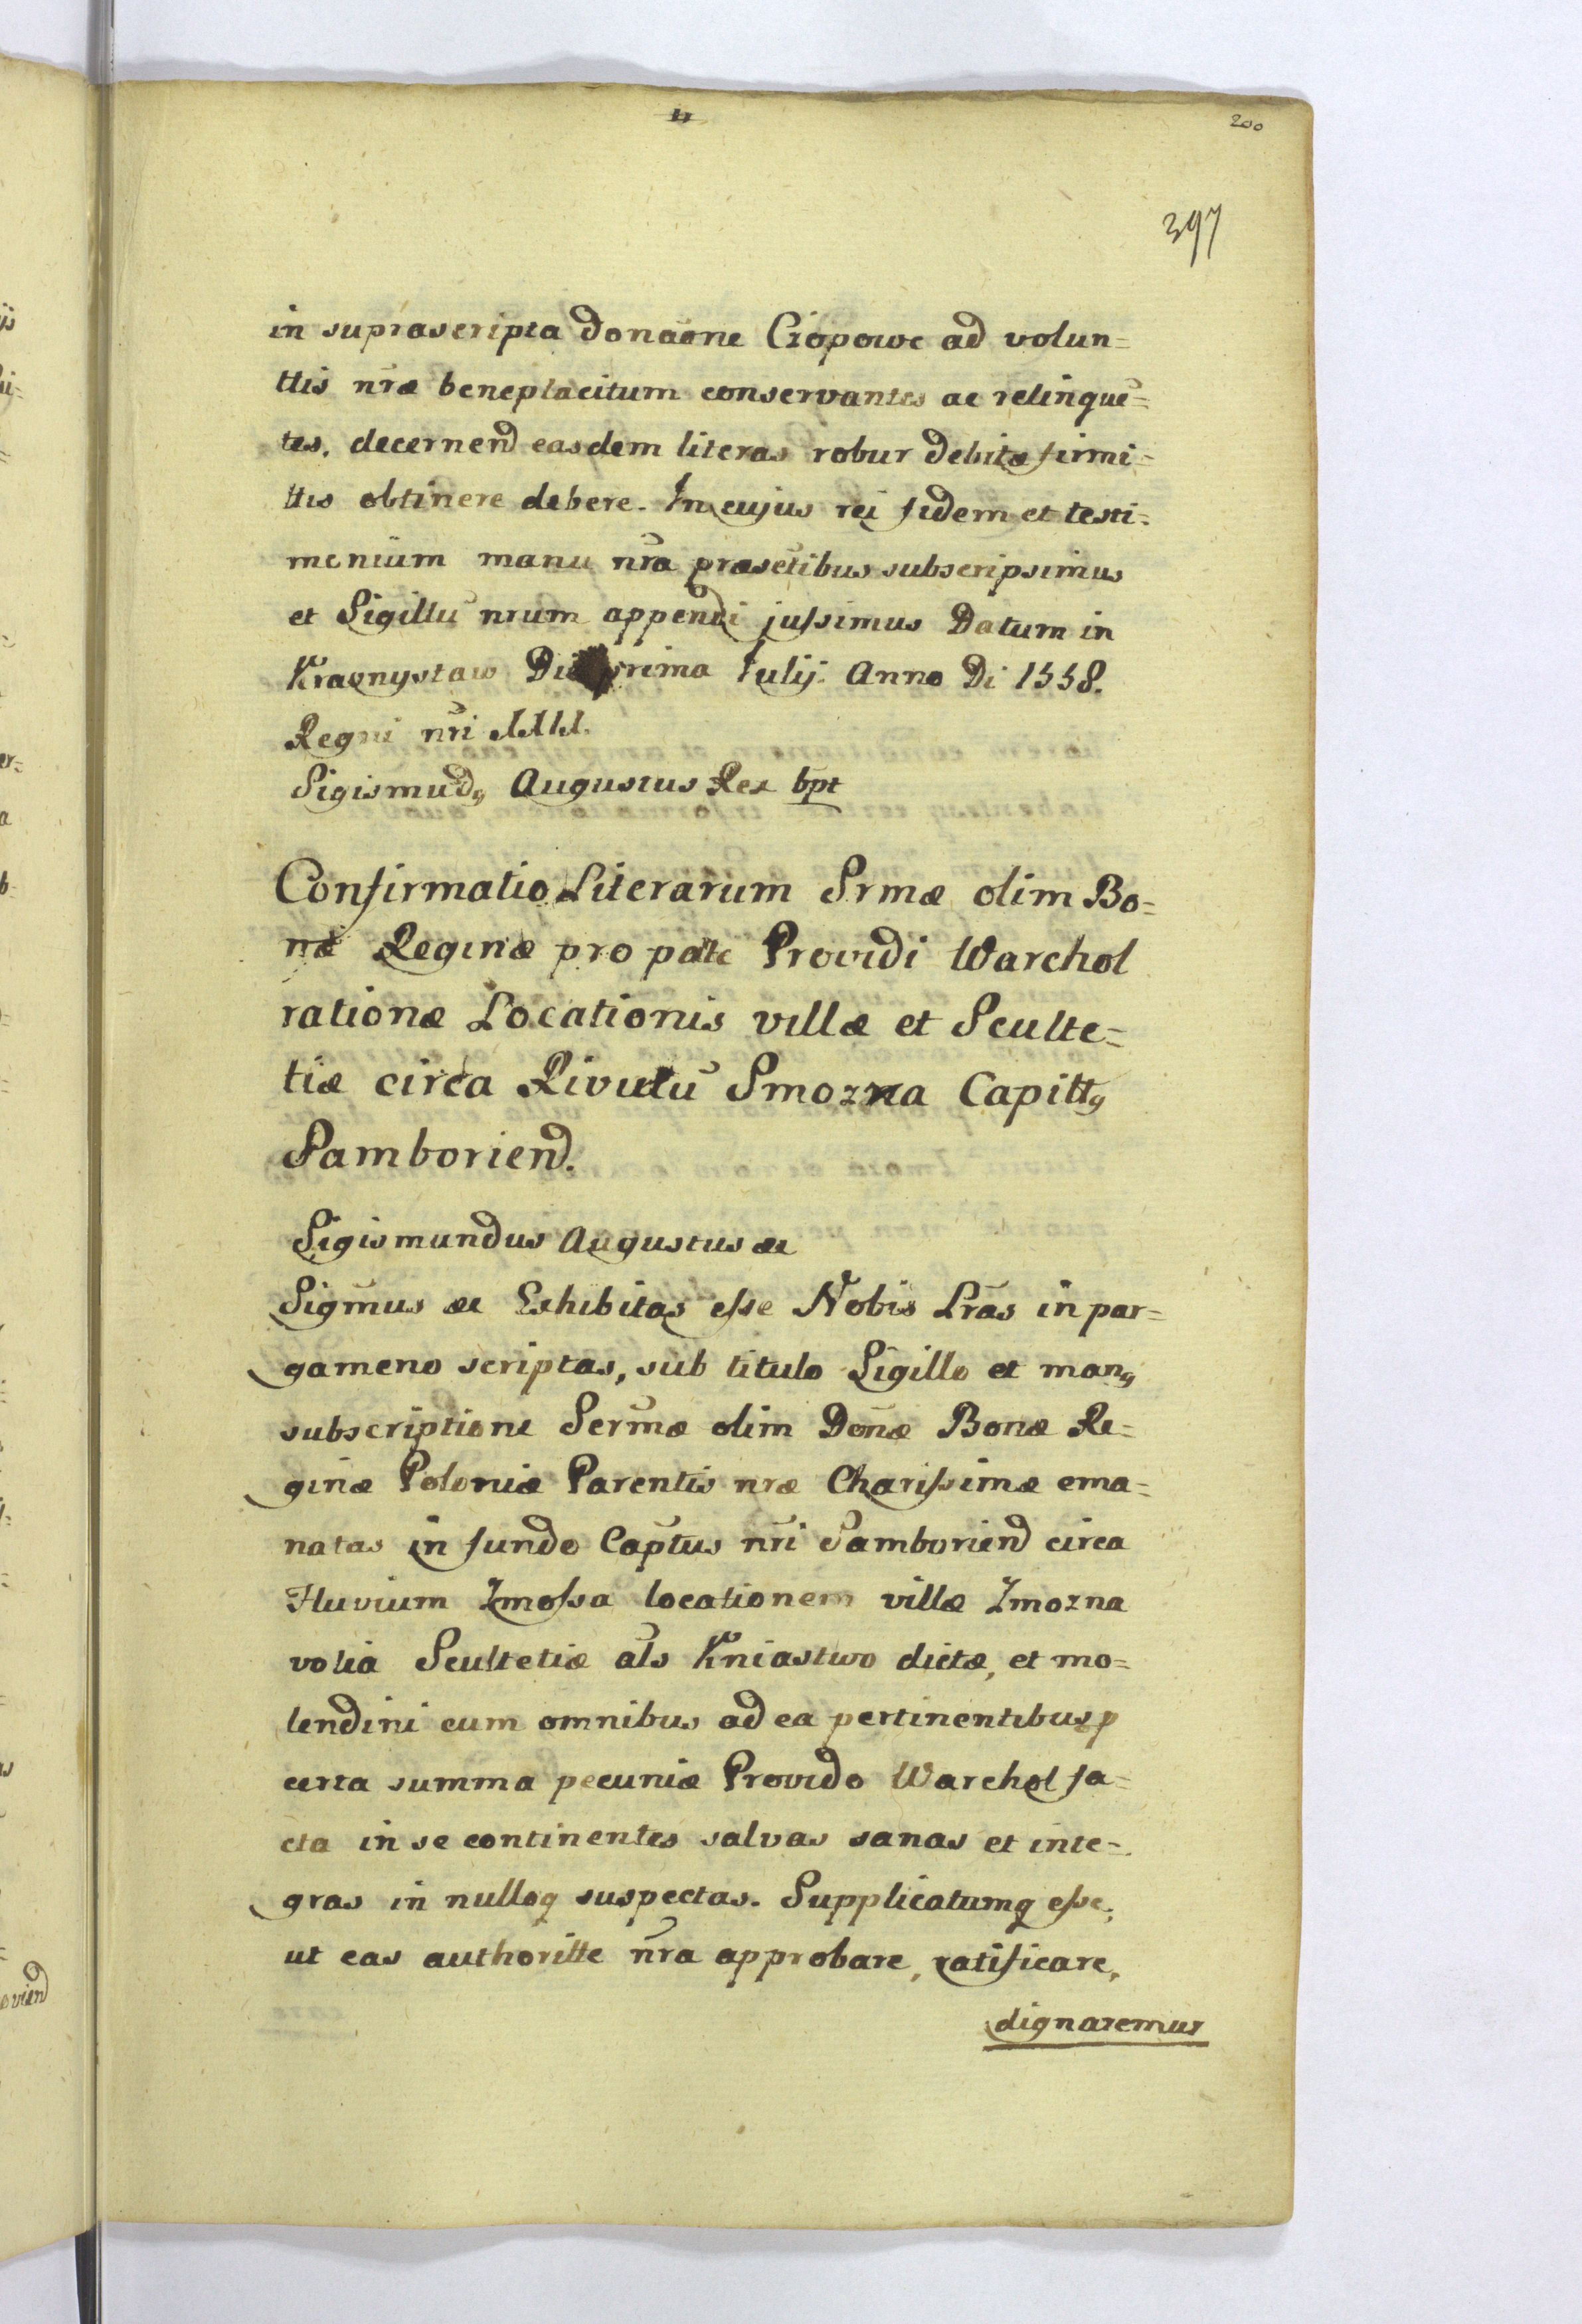 200
397
in suprascripta donaōne Czopowe ad volun=
ttis nrāe beneplacitum conservantes ac relinquē=
tes. decernend easdem literas robur debitæ firmi=
ttis obtinere debere. In cujus rei fidem et testi=
monium manu nrā præsētibus subscripsimus
et Sigillū nrum appendi jussimus Datum in
Krasnystaw Iulij. Anno Di 1558.
Regni nrī
Sigismūdg Augustus Rex
Confirmatio Literarum Srmæ olim Bo=
næ Reginæ pro pate Providi Warchol
rationæ Locationis villæ et Sculte=
tiæ circa Rivulū Smozna Capittg
Samboriend.
Sigismundus Augustus æc
Sigm̄us æc Exhibitas esse Nobis Lrās in par=
gameno scriptas, sub titulo Sigillo et mang
subscriptione Serm̄æ olim Donæ Bonæ Re=
ginæ Poloniæ Parentis nræ Charissimæ ema=
natas in fundo Captūs nrī Samboriend circa
Fluvium Zmossa locationem villæ Zmozna
volia Scultetiæ als Kniastwo dictæ, et mo=
lendini cum omnibus ad ea pertinentibus p
certa summa pecuniæ Provido Warchol fa=
cta in se continentes salvas sanas et inte=
gras in nulloq suspectas. Supplicatumq esse,
ut eas authoritte nrā approbare, ratificare,
dignaremur